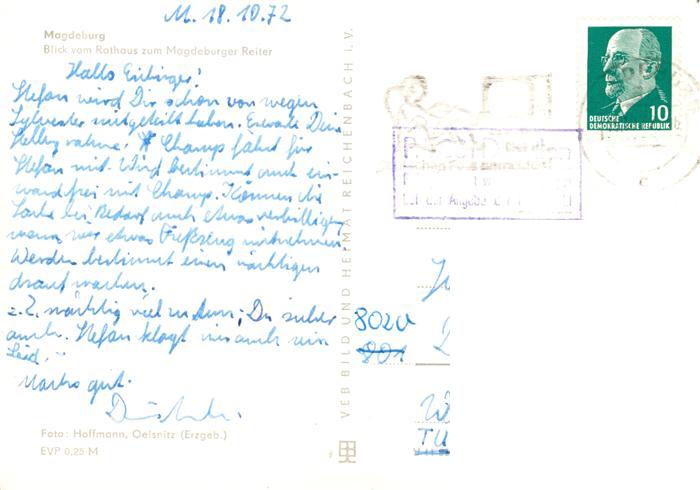 M. 18.10.72
Magdeburg
Blick vom Rathaus zum Magdeburger Reiter
Hallo
Stefan wird Dir schon von wegen
Sylvester mitgeteilt haben. Erwarte Deine
Stellungnahme! Champs fährt für
Stefan mit. Wird bestimmt auch ein-
wandfrei mit Champs. Können die
Sache bei Bedarf auch etwas verbilligen,
wenn wir etwas Freßzeug mitnehmen
Werden bestimmt einen mächtigen
drauf machen.
z. Z. mächtig viel zu tun; Du sicher
auch. Stefan klagt mir auch sein
Leid.
Machs gut.
Foto: Hoffmann, Oelsnitz (Erzgeb.)
EVP 0,25 M
VEB BILD UND HEIMAT REICHENBACH I. V.
DEUTSCHE
DEMOKRATISCHE REPUBLIK
10
8020
801
TU